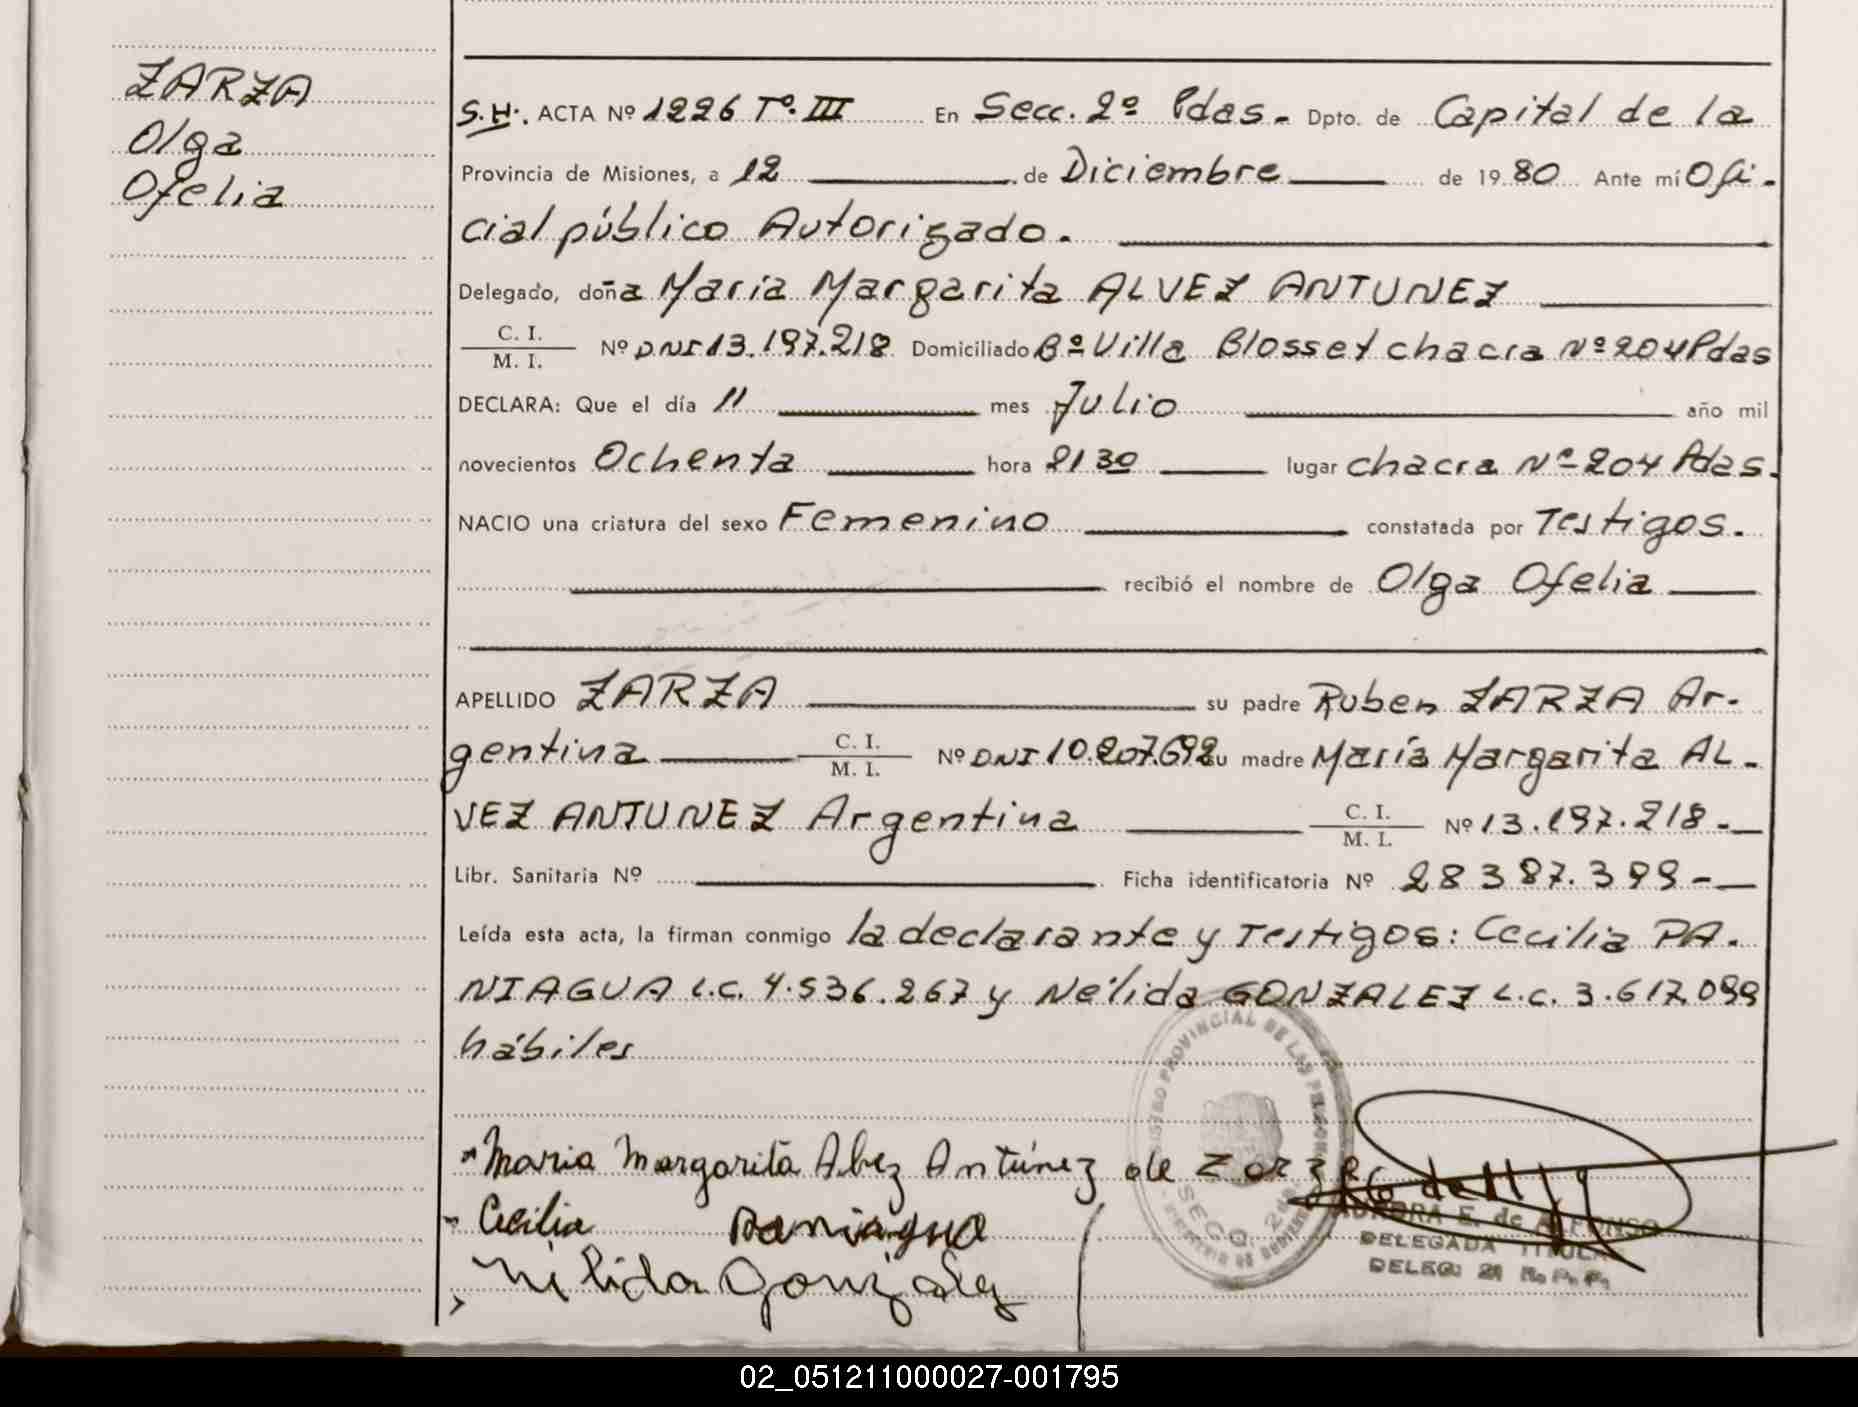 ZARZA
Olga
Ofelia
S.H. ACTA Nº 1226 Tº. III En Secc. 2º Pdas. Dpto. de Capital de la
Provincia de Misiones, a 12 de Diciembre de 1980 Ante mí Ofi-
cial público Autorizado.
Delegado, doña María Margarita ALVEZ ANTUNEZ
C. I.
M. I. Nº DNI 13.197.218 Domiciliado Bº Villa Blosset chacra Nº 204 Pdas
DECLARA: Que el día 11 mes Julio año mil
novecientos Ochenta hora 2130 lugar chacra Nº 204 Pdas.
NACIO una criatura del sexo Femenino constatada por Testigos.
recibió el nombre de Olga Ofelia
APELLIDO ZARZA su padre Ruben ZARZA Ar-
gentina C. I. M. I. Nº DNI 10.207.692 su madre María Margarita AL-
VEZ ANTUNEZ Argentina C. I. M. I. Nº 13.197.218.-
Libr. Sanitaria Nº Ficha identificatoria Nº 28387.399-
Leída esta acta, la firman conmigo la declarante y Testigos: Cecilia PA-
NIAGUA L.C. 4.536.267 y Nélida GONZALEZ L.C. 3.617.099
hábiles
Maria Margarita Alvez Antúnez de Zarza
Cecilia Paniagua
Nelida Gonzalez
REGISTRO PROVINCIAL DE LAS PERSONAS
SECC. 2da.
AURORA E. de ALFONSO
DELEGADA TITULAR
DELEG: 2ª R. P. P.
02_051211000027-001795